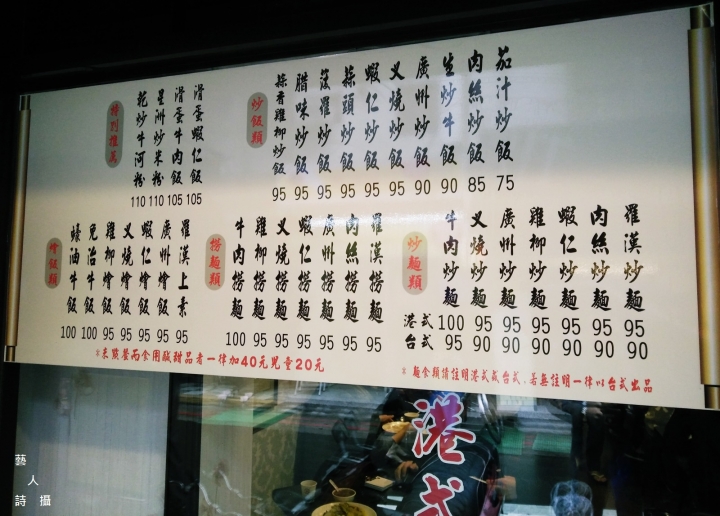 特別推薦
乾炒牛河粉 110
星洲炒米粉 110
滑蛋牛肉飯 105
滑蛋蝦仁飯 105
炒飯類
蒜香雞柳炒飯 95
臘味炒飯 95
菠羅炒飯 95
蒜頭炒飯 95
蝦仁炒飯 95
叉燒炒飯 95
廣州炒飯 90
生炒牛飯 90
肉絲炒飯 85
茄汁炒飯 75
燴飯類
蠔油牛飯 100
免治牛飯 100
雞柳燴飯 95
叉燒燴飯 95
蝦仁燴飯 95
廣州燴飯 95
羅漢上素 95
撈麵類
牛肉撈麵 100
雞柳撈麵 95
叉燒撈麵 95
蝦仁撈麵 95
廣州撈麵 95
肉絲撈麵 95
羅漢撈麵 95
炒麵類
牛肉炒麵
叉燒炒麵
廣州炒麵
雞柳炒麵
蝦仁炒麵
肉絲炒麵
羅漢炒麵
港式 100 95 95 95 95 95 95
台式 95 90 90 90 90 90 90
※未點餐而食用鹹甜品者一律加40元兒童20元
※ 麵食類請註明港式或台式，若無註明一律以台式出品
港式
藝人詩攝